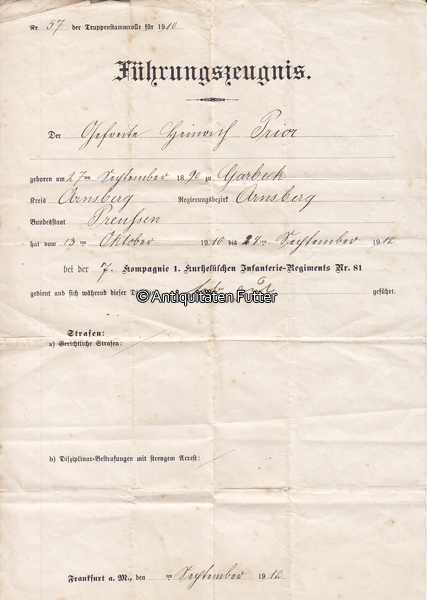 Nr. 57 der Truppenstammrolle für 1910
Führungszeugnis.
Der Gefreite Heinrich Prior
geboren am 27ten September 1890 zu Garbeck
Kreis Arnsberg Regierungsbezirk Arnsberg
Bundesstaat Preussen
hat vom 13ten Oktober 1910 bis 24ten September 1912
bei der 7. Kompagnie 1. Kurhessischen Infanterie-Regiments Nr. 81
gedient und sich während dieser geführt.
© Antiquitäten Futter
Strafen:
a) Gerichtliche Strafen:
b) Disziplinar-Bestrafungen mit strengem Arrest:
Frankfurt a. M., den ten September 1912